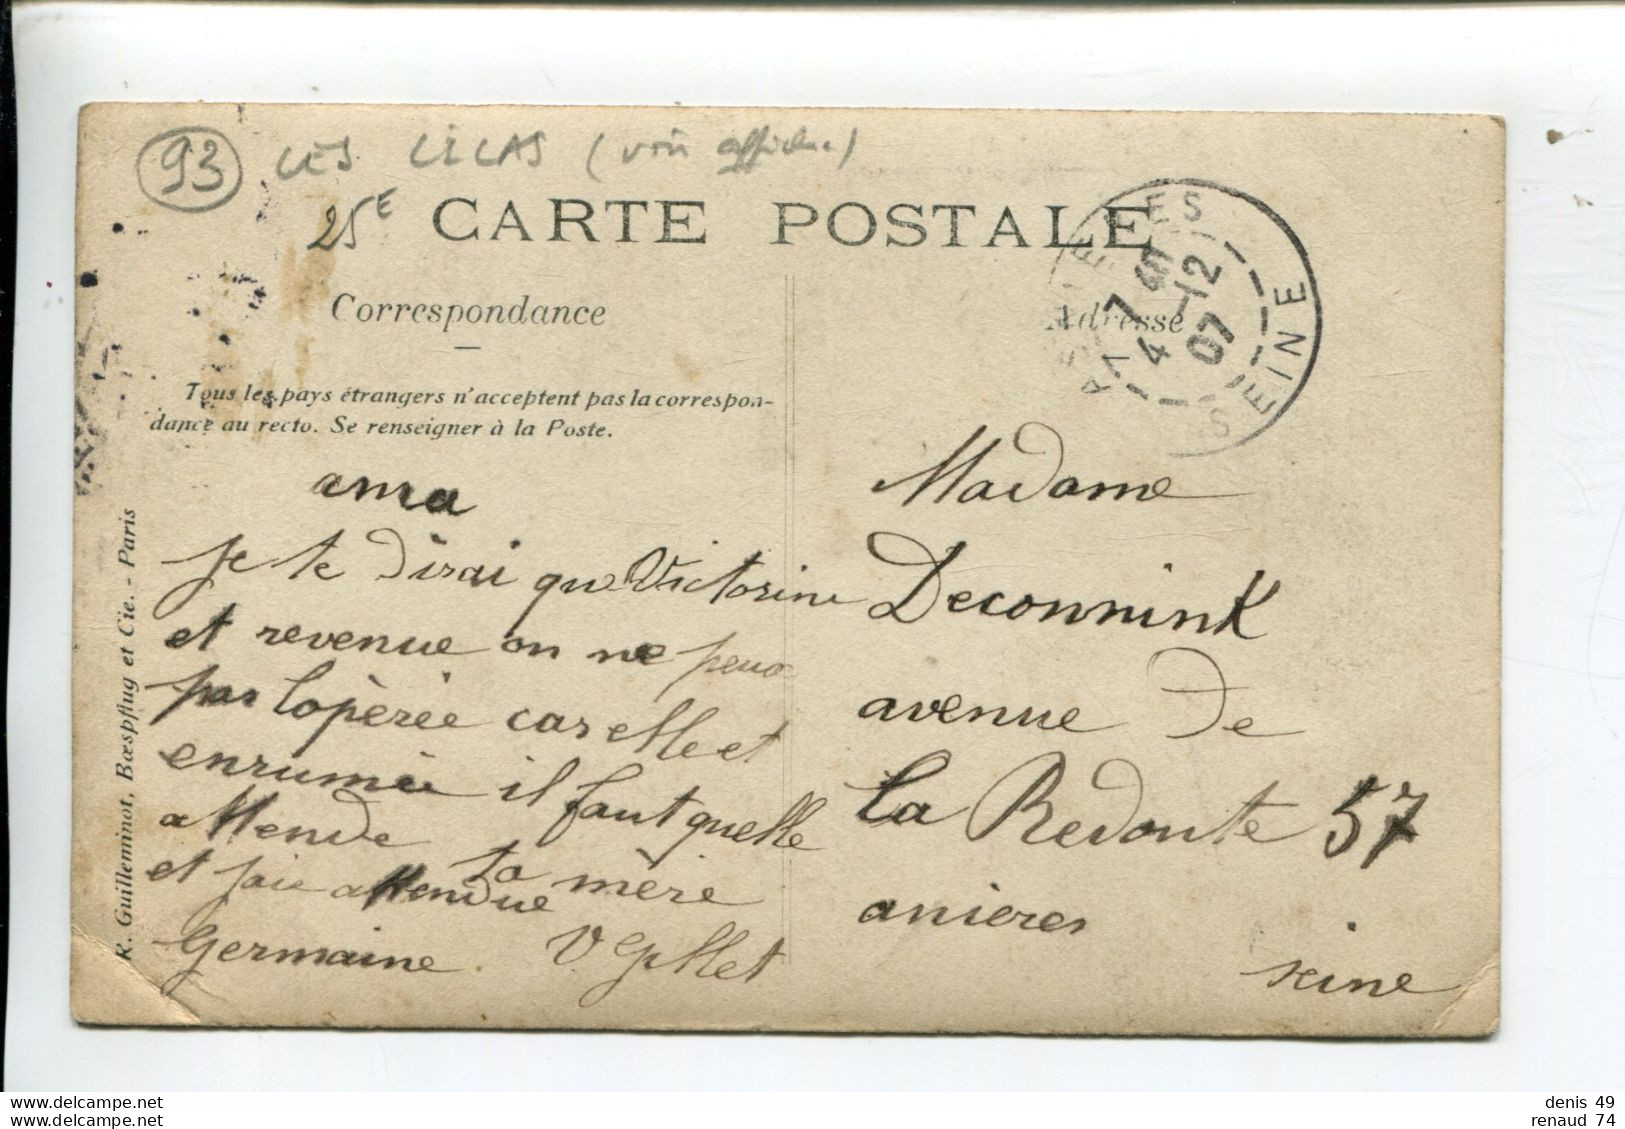 93 LES LILAS (voir affiche)
25E
CARTE POSTALE
Correspondance
Adresse
Tous les pays étrangers n'acceptent pas la correspon-
dance au recto. Se renseigner à la Poste.
R. Guilleminot, Bœspflug et Cie. - Paris
ASNIERES
7 45
4 -12
07
SEINE
ama
je te dirai que Victorine
et revenue on ne peux
pas lopèrée car elle et
enrumée il faut quelle
attende ta mère
et jaie attendue
Germaine
Madame
Deconnink
avenue de
la Redoute 57
anieres
seine
www.delcampe.net
www.delcampe.net
denis 49
renaud 74